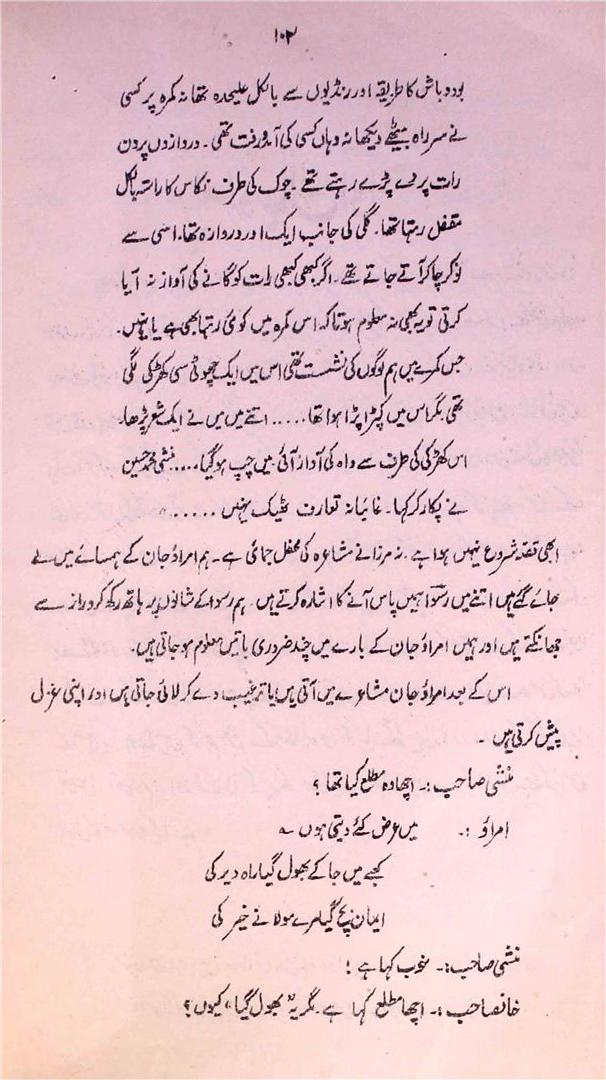 ۱۰۲
بود و باش کا طریقہ اور رنڈیوں سے بالکل علیحدہ تھا نہ کمرہ پر کسی
نے سرراہ بیٹھے دیکھا نہ وہاں کسی کی آمدورفت تھی ۔ دروازوں پر دن
رات پردے پڑے رہتے تھے ۔ چوک کی طرف نکاس کا راستہ بالکل
مقفل رہتا تھا ۔ گلی کی جانب ایک اور دروازہ تھا ، اسی سے
نوکر چاکر آتے جاتے تھے ۔ اگر کبھی کبھی رات کو گانے کی آواز نہ آیا
کرتی تو یہ بھی نہ معلوم ہوتا کہ اس کمرہ میں کوئی رہتا بھی ہے یا نہیں ۔
جس کمرے میں ہم لوگوں کی نشست تھی اس میں ایک چھوٹی سی کھڑکی لگی
تھی مگر اس میں کپڑا پڑا ہوا تھا ..... اتنے میں میں نے ایک شعر پڑھا ۔
اس کھڑکی کی طرف سے واہ کی آواز آئی ۔ میں چپ ہو گیا .... منشی محمد حسین
نے پکار کر کہا ۔ غائبانہ تعارف ٹھیک نہیں .....
ابھی قصّہ شروع نہیں ہوا ہے ۔ نہ مرزا نے مشاعرہ کی محفل جمائی ہے ۔ ہم امراؤ جان کے ہمسائے میں لے
جائے گئے ہیں اتنے میں رسوؔا ہمیں پاس آنے کا اشارہ کرتے ہیں ۔ ہم رسوا کے شانوں پر ہاتھ رکھ کر دروازے سے
جھانکتے ہیں اور ہمیں امراؤ جان کے بارے میں چند ضروری باتیں معلوم ہو جاتی ہیں ۔
اس کے بعد امراؤ جان مشاعرے میں آتی ہیں یا ترغیب دے کر لائی جاتی ہیں اور اپنی غزل
پیش کرتی ہیں ۔
منشی صاحب :۔ اچھا وہ مطلع کیا تھا ؟
امراؤ :۔ میں عرض کئے دیتی ہوں ؎
کعبے میں جا کے بھول گیا راہ دیر کی
ایمان بچ گیا مرے مولا نے خیر کی
منشی صاحب :۔ خوب کہا ہے !
خانصاحب :۔ اچھا مطلع کہا ہے ۔ مگر یہ ” بھول گیا “ کیوں ؟